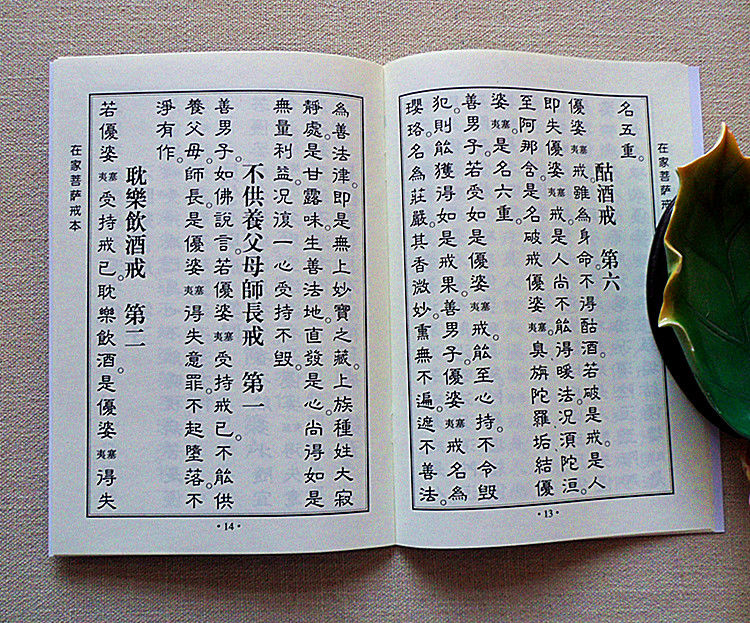 在家菩薩戒
名五重。
酤酒戒 第六
優婆塞夷戒雖為身命。不得酤酒。若破是戒。是人
即失優婆塞夷戒。是人尚不能得暖法。況須陀洹。
至阿那含。是名破戒優婆塞夷。臭旃陀羅。垢。結優
婆塞夷。是名六重。
善男子。若受如是優婆塞夷戒。能至心持。不令毀
犯。則能獲得如是戒果。善男子。優婆塞夷戒。名為
瓔珞。名為莊嚴。其香微妙。熏無不遍。遮不善法。
·13·
為善法律。即是無上妙寶之藏。上族種姓。大寂
靜處。是甘露味。生善法地。直發是心。尚得如是
無量利益。況復一心受持不毀。
不供養父母師長戒 第一
善男子。如佛說言。若優婆塞夷受持戒已。不能供
養父母。師長。是優婆塞夷得失意罪。不起墮落。不
淨有作。
耽樂飲酒戒 第二
若優婆塞夷受持戒已。耽樂飲酒。是優婆塞夷得失
在家菩薩戒本
·14·